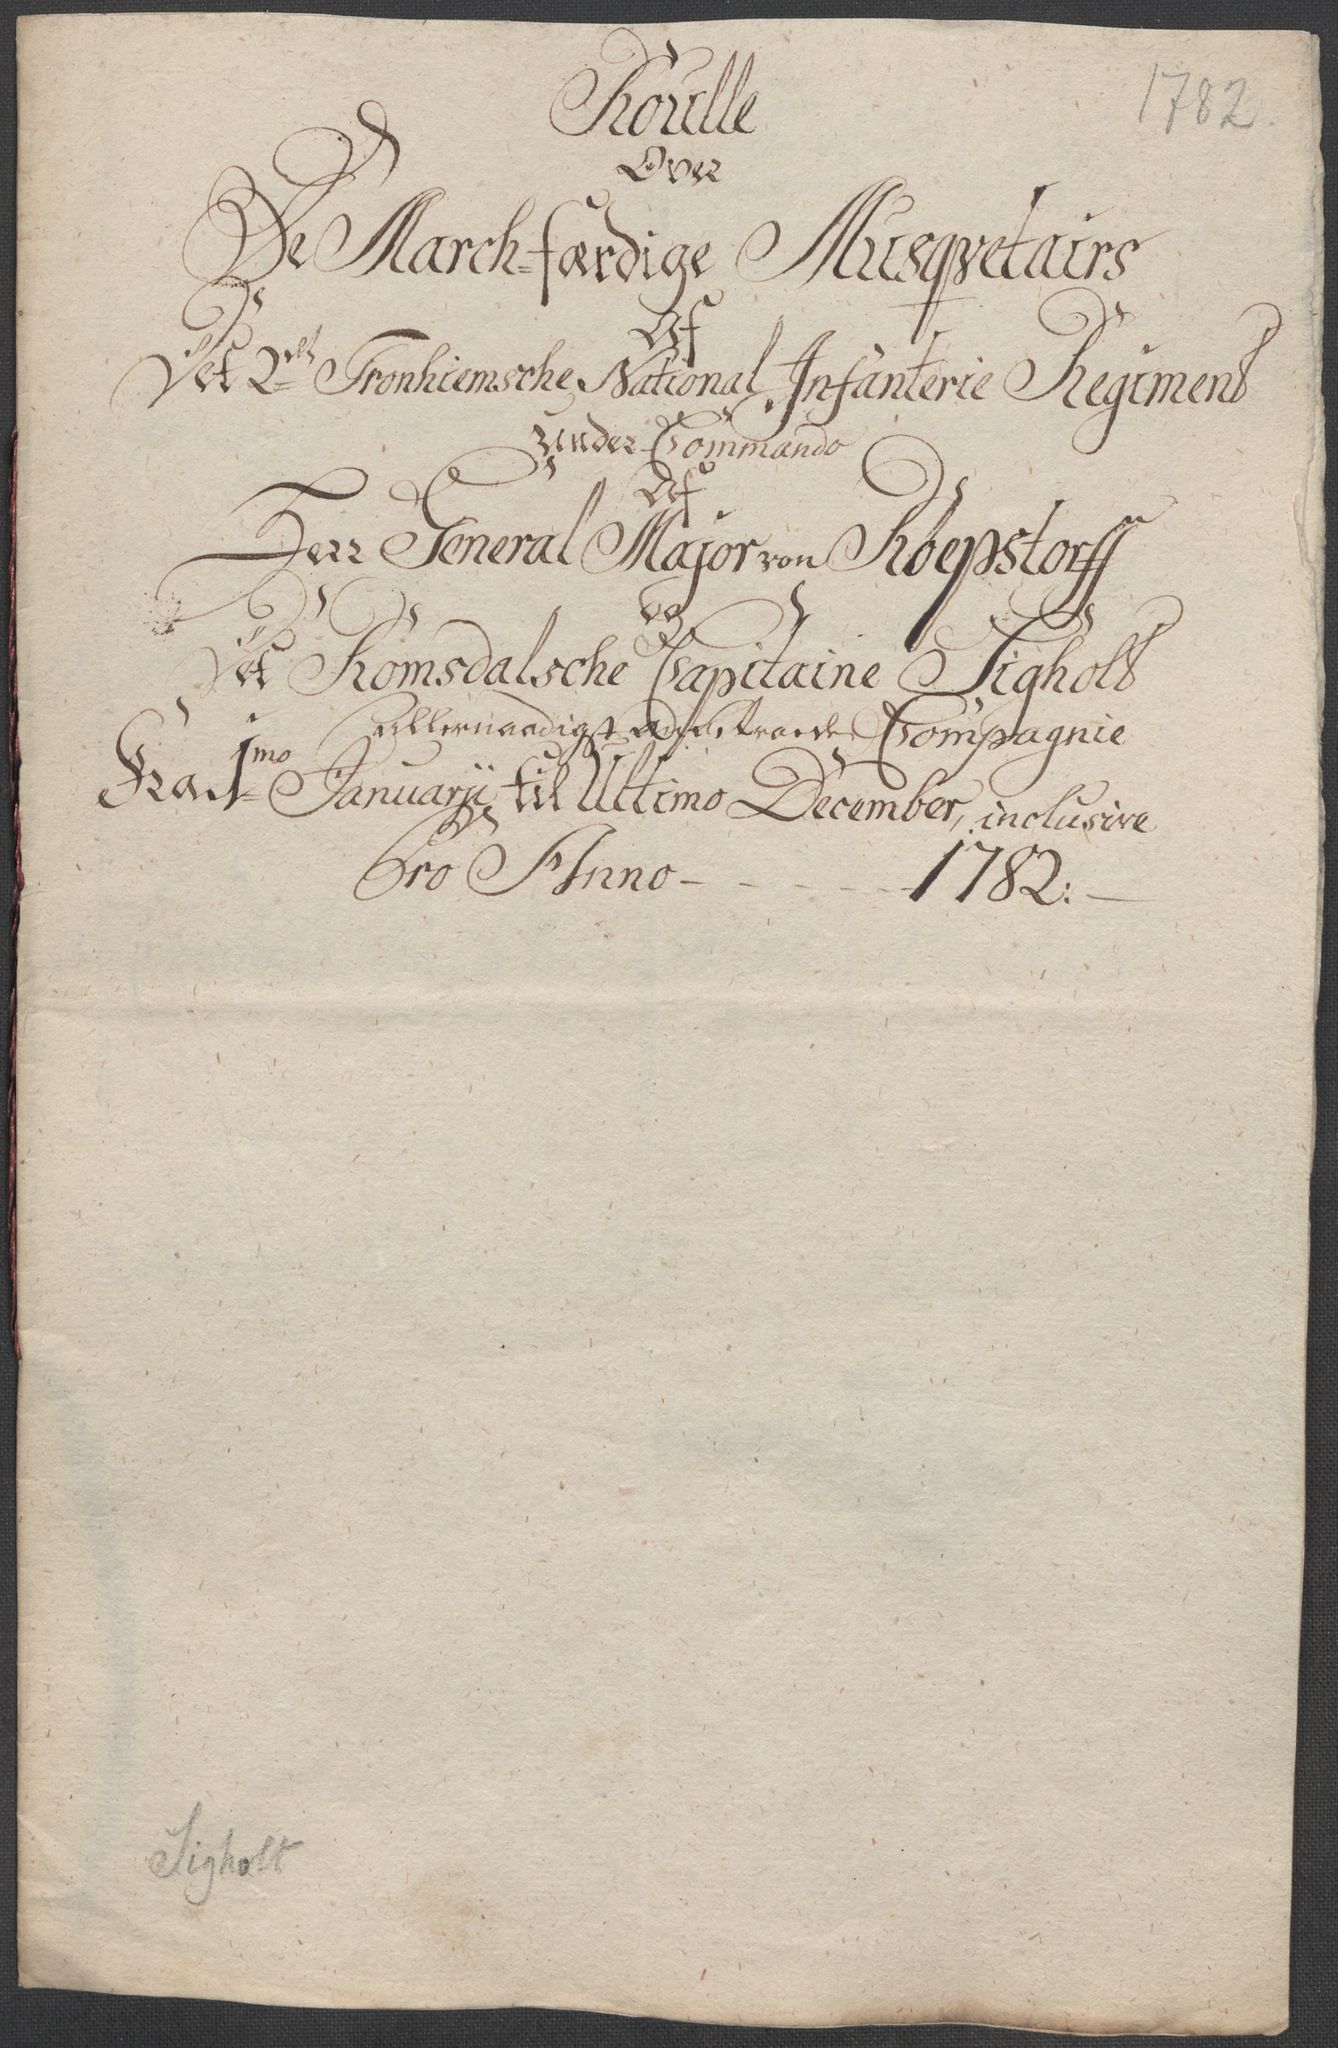 1782.
Roulle
Over
De March-færdige Musqvetairs
Af
Det 2det Tronhiemsche National Infanterie Regiment
Under Commando
Af
Herr General Major von Röepstorff
Ved
Det Romsdalsche Capitaine Sigholt
allernaadigst anbetroede Compagnie
Fra 1mo Januarii til Ultimo December, inclusive
Pro Anno - - - - - 1782:
Sigholt